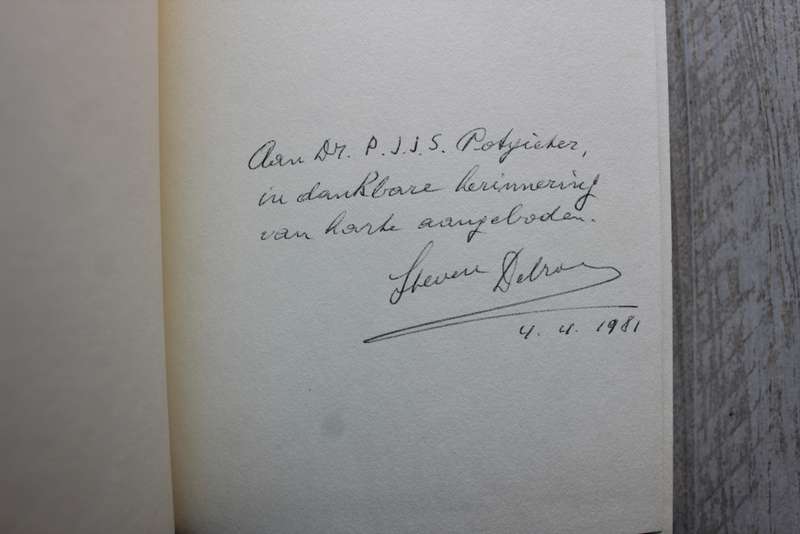 Aan Dr. P.J.J.S. Potgieter,
in dankbare herinnering
van harte aangeboden.
Steven Debroey
4. 4. 1981